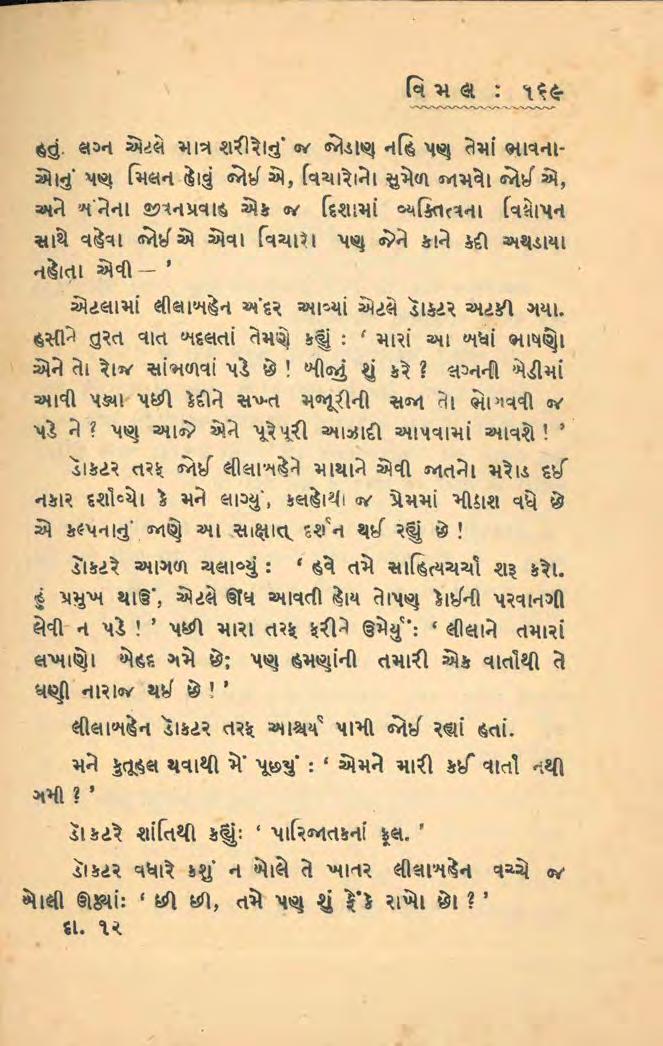 વિમલ : ૧૬૯
હતું. લગ્ન એટલે માત્ર શરીરોનું જ જોડાણ નહિ પણ તેમાં ભાવના-
ઓનું પણ મિલન હોવું જોઈએ, વિચારોનો સુમેળ જામવો જોઈએ,
અને બંનેના જીવનપ્રવાહ એક જ દિશામાં વ્યક્તિત્વના વિલોપન
સાથે વહેવા જોઈએ એવા વિચારો પણ જેને કાને કદી અથડાયા
નહોતા એવી — ’
એટલામાં લીલાબહેન અંદર આવ્યાં એટલે ડૉકટર અટકી ગયા.
હસીને તુરત વાત બદલતાં તેમણે કહ્યું : ‘ મારાં આ બધાં ભાષણો
એને તો રોજ સાંભળવાં પડે છે ! બીજું શું કરે ? લગ્નની બેડીમાં
આવી પડ્યા પછી કેદીને સખ્ત મજૂરીની સજા તો ભોગવવી જ
પડે ને ? પણ આજે એને પૂરેપૂરી આઝાદી આપવામાં આવશે ! ’
ડૉકટર તરફ જોઈ લીલાબહેને માથાને એવી જાતનો મરોડ દઈ
નકાર દર્શાવ્યો કે મને લાગ્યું, કલહોથી જ પ્રેમમાં મીઠાશ વધે છે
એ કલ્પનાનું જાણે આ સાક્ષાત્ દર્શન થઈ રહ્યું છે !
ડૉકટરે આગળ ચલાવ્યું : ‘ હવે તમે સાહિત્યચર્ચા શરૂ કરો.
હું પ્રમુખ થાઉં, એટલે ઊંઘ આવતી હોય તોપણ કોઈની પરવાનગી
લેવી ન પડે ! ’ પછી મારા તરફ ફરીને ઉમેર્યું : ‘ લીલાને તમારાં
લખાણો બેહદ ગમે છે; પણ હમણાંની તમારી એક વાર્તાથી તે
ઘણી નારાજ થઈ છે ! ’
લીલાબહેન ડૉકટર તરફ આશ્ચર્ય પામી જોઈ રહ્યાં હતાં.
મને કુતૂહલ થવાથી મેં પૂછ્યું : ‘ એમને મારી કઈ વાર્તા નથી
ગમી ? ’
ડૉકટરે શાંતિથી કહ્યું: ‘ પારિજાતકનાં ફૂલ. ’
ડૉકટર વધારે કશું ન બોલે તે ખાતર લીલાબહેન વચ્ચે જ
બોલી ઊઠ્યાં: ‘ છી છી, તમે પણ શું ફેંકે રાખો છો ? ’
દા. ૧૨